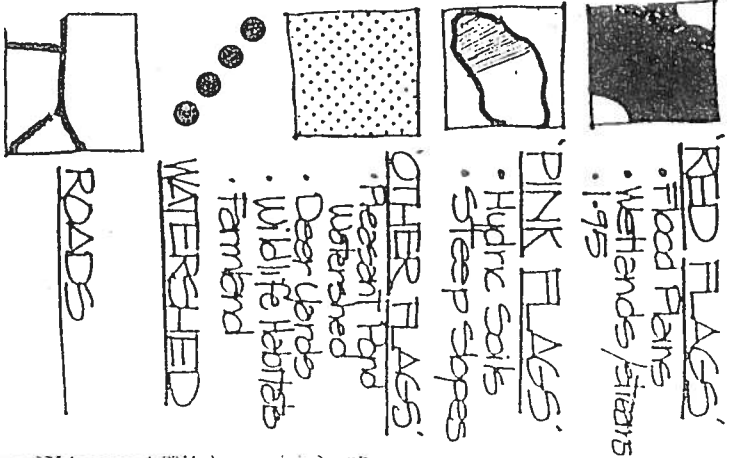 'RED FLAGS'
• Flood Plains
• Wetlands/Streams
• I-95
'PINK FLAGS'
• Hydric Soils
• Steep Slopes
'OTHER FLAGS'
• Pleasant Pond
Watershed
• Deer Yards
• Wildlife Habitats
• Farmland
WATERSHED
ROADS